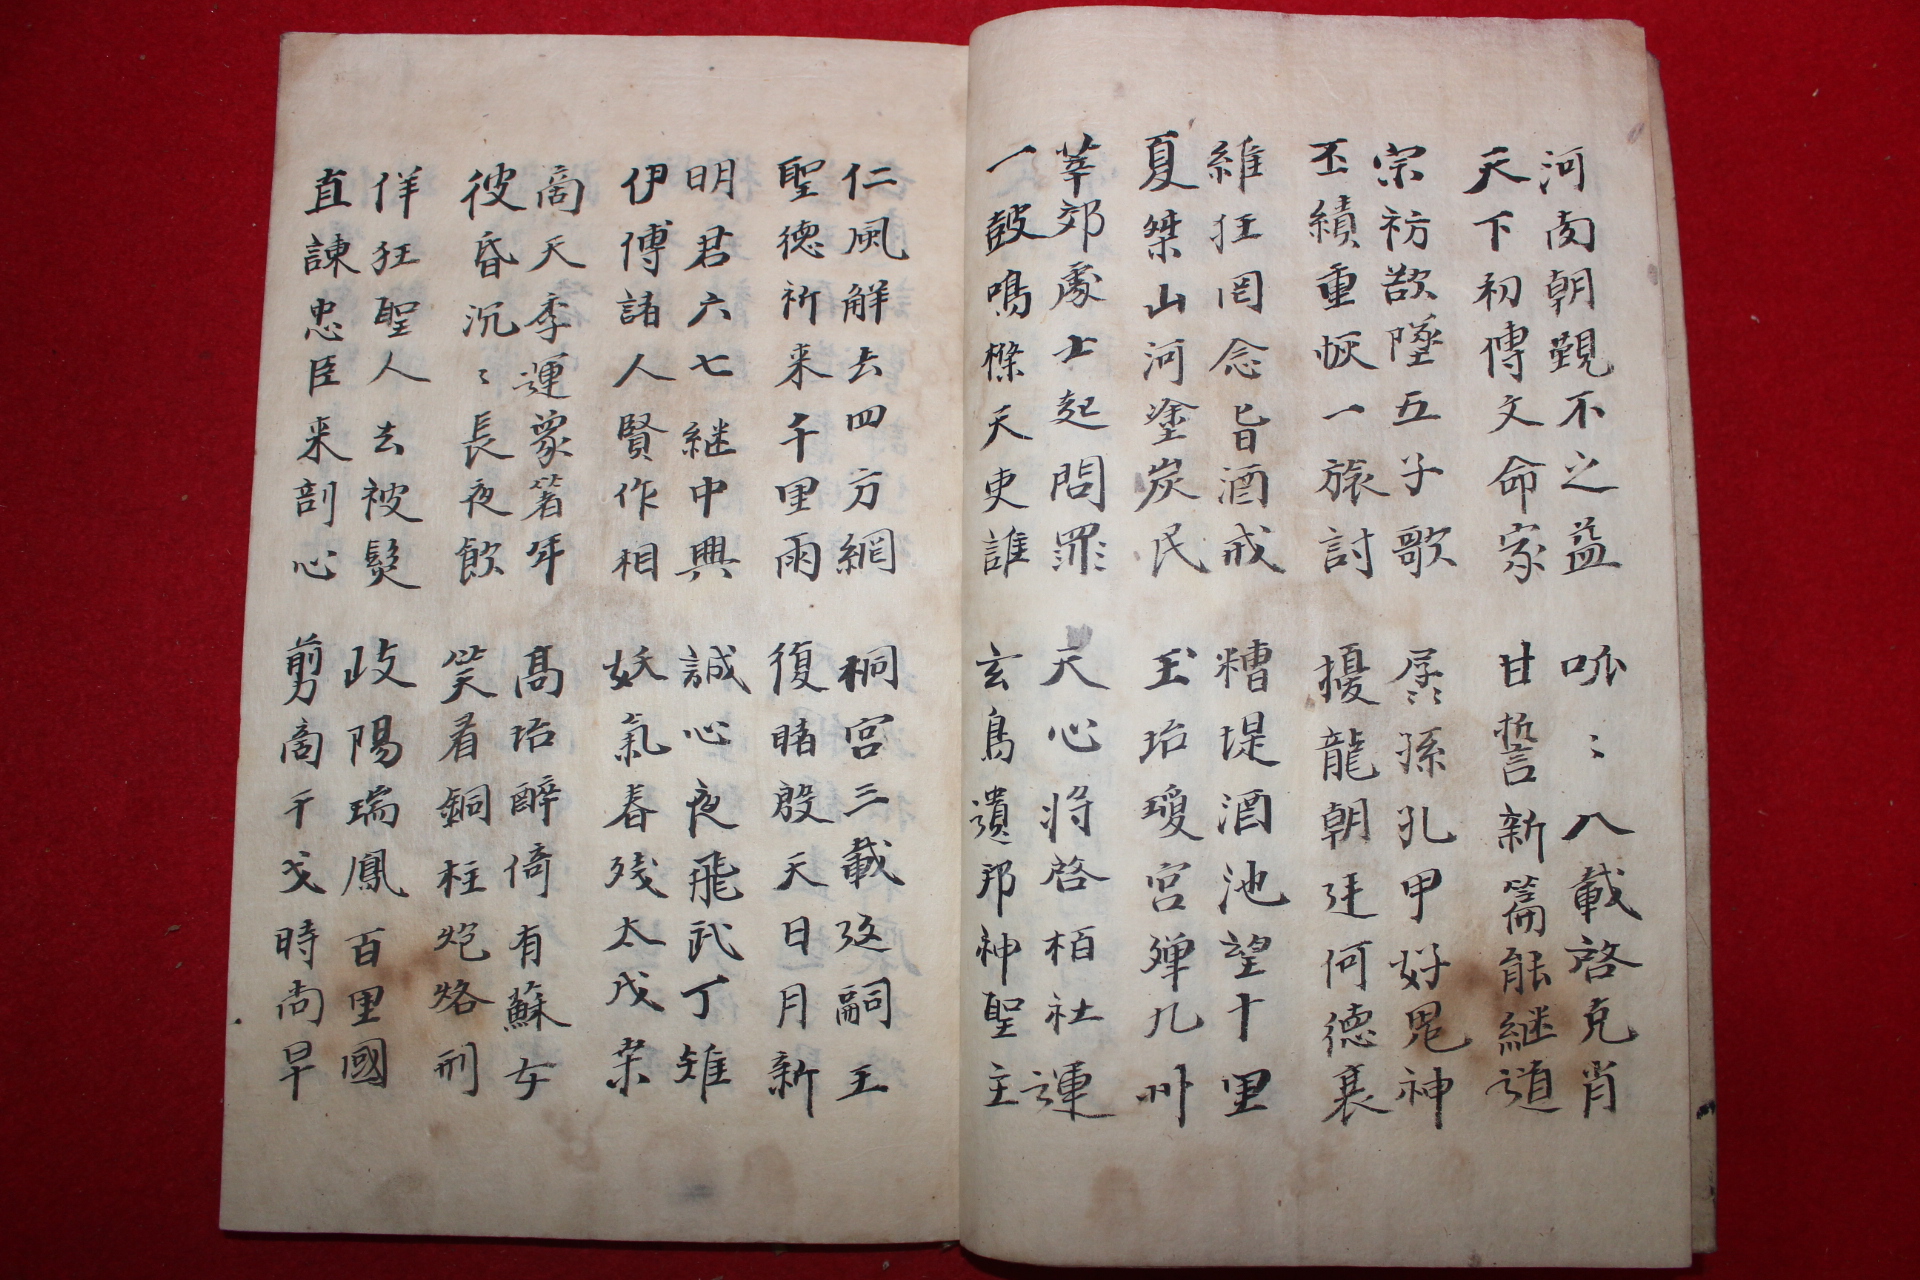 河南朝覲不之益 呱〻八載啓克肖
天下初傳文命家 甘誓新篇能継道
宗祊欲墜五子歌 孱孫孔甲好鬼神
丕績重恢一旅討 擾龍朝廷何德襄
維狂罔念旨酒戒 糟堤酒池望十里
夏桀山河塗炭民 玉坮瓊宮殫九州
莘郊處士起問罪 天心将啓栢社運
一鼓鳴條天吏誰 玄鳥遺邦神聖主
仁風解去四方網 桐宮三載返嗣王
聖德祈来千里雨 復睹殷天日月新
明君六七継中興 誠心夜飛武丁雉
伊傅諸人賢作相 妖氣春残太戊桒
商天季運象箸年 高坮醉倚有蘇女
彼昏沉〻長夜飮 笑看銅柱炮烙刑
佯狂聖人去被髮 歧陽瑞鳳百里國
直諫忠臣来剖心 剪商干戈時尚早